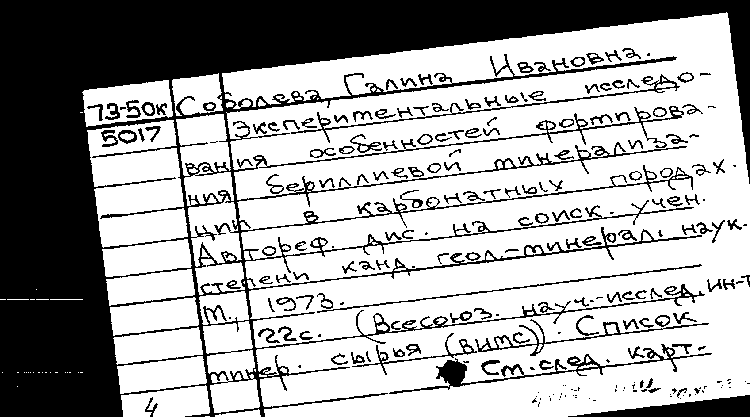 73-50к Соболева, Галина Ивановна.
5017 Экспериментальные исследо-
вания особенностей формирова-
ния бериллиевой минерализа-
ции в карбонатных породах.
Автореф. дис. на соиск. учен.
степени канд. геол.-минерал. наук.
М., 1973.
22с. (Всесоюз. науч.-исслед. ин-т
минер. сырья (ВИМС)). Список
См. след. карт.
4